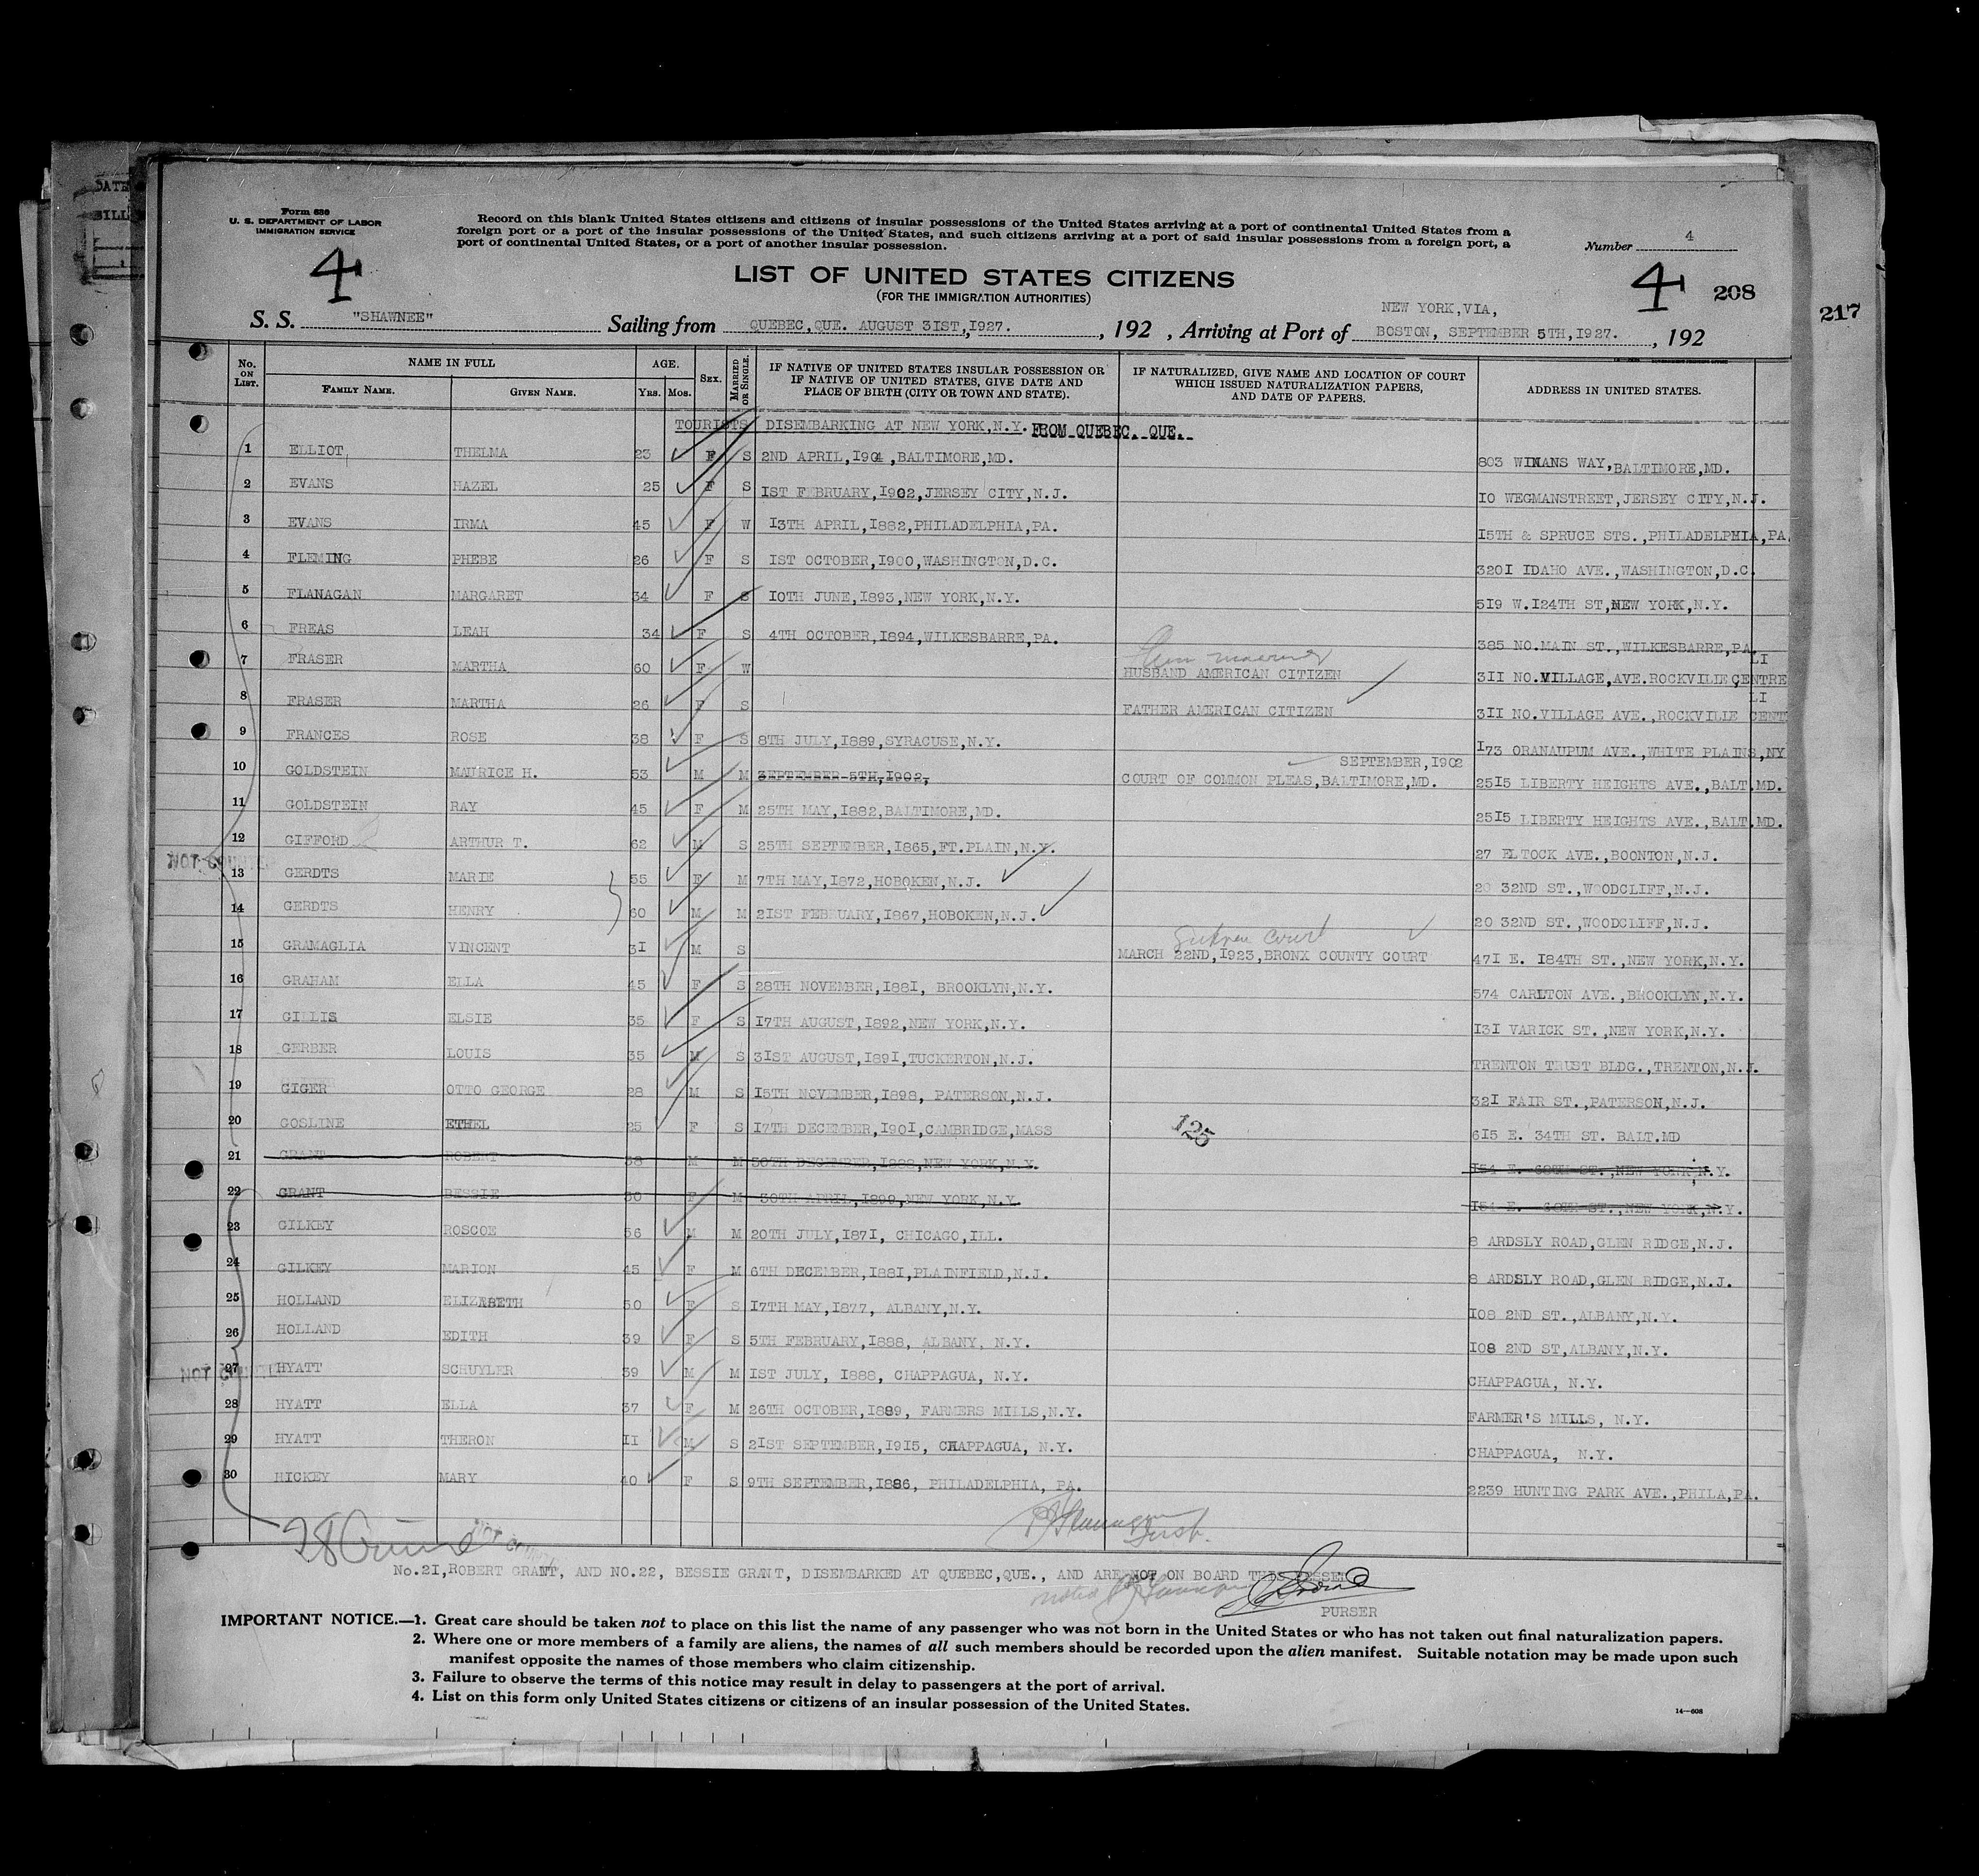 DATE
BILL
Form 630
U. S. DEPARTMENT OF LABOR
IMMIGRATION SERVICE
Record on this blank United States citizens and citizens of insular possessions of the United States arriving at a port of continental United States from a
foreign port or a port of the insular possessions of the United States, and such citizens arriving at a port of said insular possessions from a foreign port, a
port of continental United States, or a port of another insular possession.
Number 4
4
LIST OF UNITED STATES CITIZENS
(FOR THE IMMIGRATION AUTHORITIES)
4 208
217
NEW YORK,VIA,
S. S. "SHAWNEE" Sailing from QUEBEC,QUE. AUGUST 31ST,1927. , 192 , Arriving at Port of BOSTON, SEPTEMBER 5TH,1927. , 192
No. ON LIST. NAME IN FULL FAMILY NAME. GIVEN NAME. AGE. YRS. MOS. SEX. MARRIED OR SINGLE. IF NATIVE OF UNITED STATES INSULAR POSSESSION OR IF NATIVE OF UNITED STATES, GIVE DATE AND PLACE OF BIRTH (CITY OR TOWN AND STATE). IF NATURALIZED, GIVE NAME AND LOCATION OF COURT WHICH ISSUED NATURALIZATION PAPERS, AND DATE OF PAPERS. ADDRESS IN UNITED STATES.
TOURISTS DISEMBARKING AT NEW YORK,N.Y. FROM QUEBEC. QUE.
1 ELLIOT THELMA 23 F S 2ND APRIL,1904,BALTIMORE,MD. 803 WINANS WAY,BALTIMORE,MD.
2 EVANS HAZEL 25 F S 1ST FEBRUARY,1902,JERSEY CITY,N.J. 10 WEGMANSTREET,JERSEY CITY,N.J.
3 EVANS IRMA 45 F W 13TH APRIL,1882,PHILADELPHIA,PA. 15TH & SPRUCE STS.,PHILADELPHIA,PA.
4 FLEMING PHEBE 26 F S 1ST OCTOBER,1900,WASHINGTON,D.C. 3201 IDAHO AVE.,WASHINGTON,D.C.
5 FLANAGAN MARGARET 34 F S 10TH JUNE,1893,NEW YORK,N.Y. 519 W.124TH ST,NEW YORK,N.Y.
6 FREAS LEAH 34 F S 4TH OCTOBER,1894,WILKESBARRE,PA. 385 NO.MAIN ST.,WILKESBARRE,PA.
7 FRASER MARTHA 60 F W HUSBAND AMERICAN CITIZEN 311 NO.VILLAGE,AVE.ROCKVILLE CENTRE LI
8 FRASER MARTHA 26 F S FATHER AMERICAN CITIZEN 311 NO.VILLAGE AVE.,ROCKVILLE CENT LI
9 FRANCES ROSE 38 F S 8TH JULY,1889,SYRACUSE,N.Y. 173 ORANAUPUM AVE.,WHITE PLAINS,NY
10 GOLDSTEIN MAURICE H. 53 M M SEPTEMBER 5TH,1902, SEPTEMBER,1902 COURT OF COMMON PLEAS,BALTIMORE,MD. 2515 LIBERTY HEIGHTS AVE.,BALT.MD.
11 GOLDSTEIN RAY 45 F M 25TH MAY,1882,BALTIMORE,MD. 2515 LIBERTY HEIGHTS AVE.,BALT.MD.
12 GIFFORD ARTHUR T. 62 M S 25TH SEPTEMBER,1865,FT.PLAIN,N.Y. 27 ELTOCK AVE.,BOONTON,N.J.
NOT
13 GERDTS MARIE 55 F M 7TH MAY,1872,HOBOKEN,N.J. 20 32ND ST.,WOODCLIFF,N.J.
14 GERDTS HENRY 60 M M 21ST FEBRUARY,1867,HOBOKEN,N.J. 20 32ND ST.,WOODCLIFF,N.J.
15 GRAMAGLIA VINCENT 31 M S Court MARCH 22ND,1923,BRONX COUNTY COURT 471 E. 184TH ST.,NEW YORK,N.Y.
16 GRAHAM ELLA 45 F S 28TH NOVEMBER,1881, BROOKLYN,N.Y. 574 CARLTON AVE.,BROOKLYN,N.Y.
17 GILLIS ELSIE 35 F S 17TH AUGUST,1892,NEW YORK,N.Y. 131 VARICK ST.,NEW YORK,N.Y.
18 GERBER LOUIS 35 M S 31ST AUGUST,1891,TUCKERTON,N.J. TRENTON TRUST BLDG.,TRENTON,N.J.
19 GIGER OTTO GEORGE 28 M S 15TH NOVEMBER,1898, PATERSON,N.J. 321 FAIR ST.,PATERSON,N.J.
20 GOSLINE ETHEL 25 F S 17TH DECEMBER,1901,CAMBRIDGE,MASS 615 E. 34TH ST. BALT.MD
125
21 GRANT ROBERT 38 M M 30TH DECEMBER,1888,NEW YORK,N.Y. 154 E. 60TH ST.,NEW YORK N.Y.
22 GRANT BESSIE 30 F M 30TH APRIL,1899,NEW YORK,N.Y. 154 E. 60TH ST.,NEW YORK,N.Y.
23 GILKEY ROSCOE 56 M M 20TH JULY,1871, CHICAGO,ILL. 8 ARDSLY ROAD,GLEN RIDGE,N.J.
24 GILKEY MARION 45 F M 6TH DECEMBER,1881,PLAINFIELD,N.J. 8 ARDSLY ROAD,GLEN RIDGE,N.J.
25 HOLLAND ELIZABETH 50 F S 17TH MAY,1877, ALBANY,N.Y. 108 2ND ST.,ALBANY,N.Y.
26 HOLLAND EDITH 39 F S 5TH FEBRUARY,1888, ALBANY, N.Y. 108 2ND ST,ALBANY,N.Y.
NOT
27 HYATT SCHUYLER 39 M M 1ST JULY, 1888, CHAPPAGUA, N.Y. CHAPPAGUA, N.Y.
28 HYATT ELLA 37 F M 26TH OCTOBER,1889, FARMERS MILLS,N.Y. FARMER'S MILLS, N.Y.
29 HYATT THERON 11 M S 21ST SEPTEMBER,1915, CHAPPAGUA, N.Y. CHAPPAGUA, N.Y.
30 HICKEY MARY 40 F S 9TH SEPTEMBER,1886, PHILADELPHIA, PA. 2239 HUNTING PARK AVE.,PHILA,PA.
28
No.21,ROBERT GRANT, AND NO.22, BESSIE GRANT, DISEMBARKED AT QUEBEC,QUE., AND ARE NOT ON BOARD THIS VESSEL
noted
PURSER
IMPORTANT NOTICE.—1. Great care should be taken not to place on this list the name of any passenger who was not born in the United States or who has not taken out final naturalization papers.
2. Where one or more members of a family are aliens, the names of all such members should be recorded upon the alien manifest. Suitable notation may be made upon such
manifest opposite the names of those members who claim citizenship.
3. Failure to observe the terms of this notice may result in delay to passengers at the port of arrival.
4. List on this form only United States citizens or citizens of an insular possession of the United States.
14—608